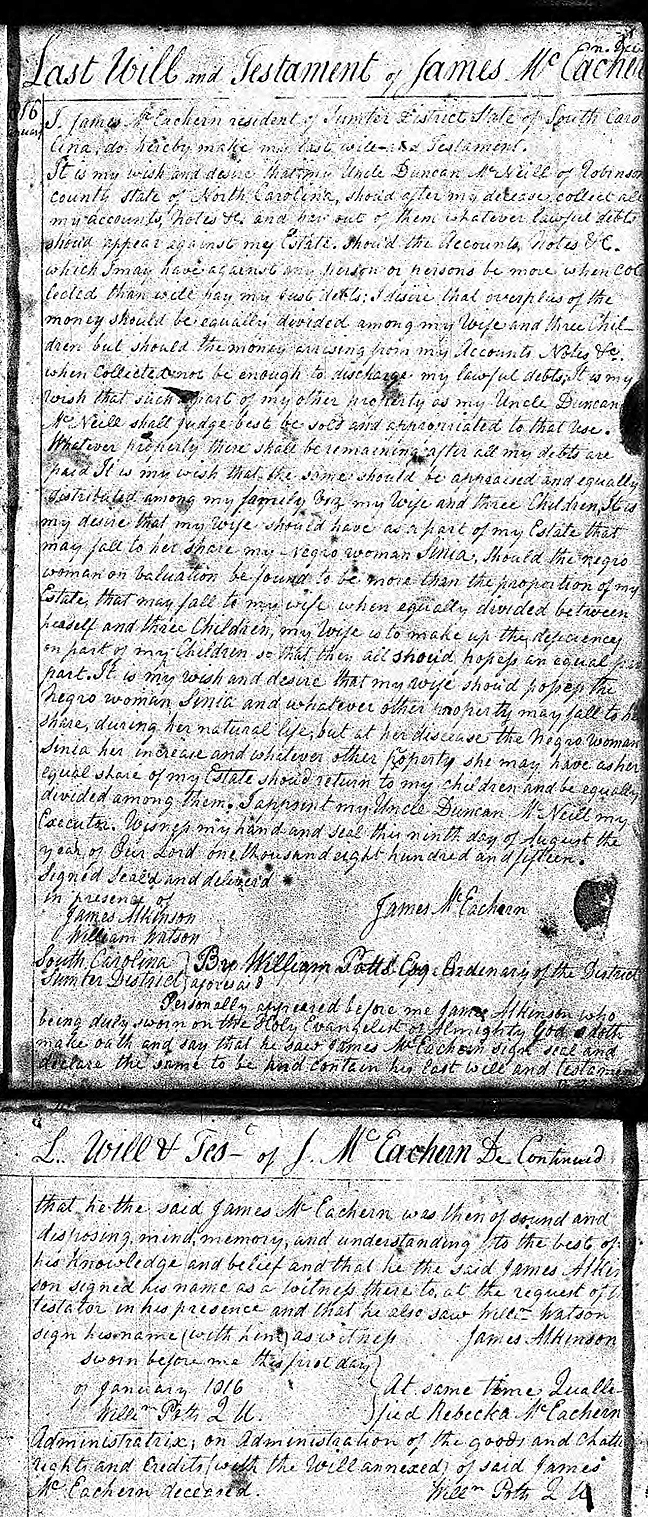 Last Will and Testament of James McEachern Dec
1816
January
I James McEachern resident of Sumter District State of South Caro
lina, do hereby make my last will and Testament.
It is my wish and desire that my Uncle Duncan McNeill of Robinson
county state of North Carolina, should after my decease, collect all
my accounts, Notes &c. and pay out of them whatever lawful debts
should appear against my Estate. Should the Accounts, Notes &c.
which I may have against any person or persons be more when col
lected than will pay my just debts; I desire that overplus of the
money should be equally divided among my Wife and three Chil-
dren but should the money arrising from my Accounts Notes &c.
when Collected not be enough to discharge my lawful debts, It is my
wish that such part of my other property as my Uncle Duncan
McNeill shall judge best be sold and appropriated to that use.
Whatever property there shall be remaining after all my debts are
paid It is my wish that the same should be appraised and equally
distributed among my family Viz my Wife and three Children, It is
my desire that my Wife should have as a part of my Estate that
may fall to her share my Negro woman Sinia, Should the negro
woman on valuation be found to be more than the proportion of my
Estate, that may fall to my wife when equally divided between
herself and three Children, my Wife is to make up the deficiency
on part of my Children so that they all should possess an equal
part. It is my wish and desire that my wife should possess the
Negro woman Sinia and whatever other property may fall to her
share, during her natural life, but at her disease the Negro woman
Sinia her increase and whatever other property she may have as her
equal share of my Estate should return to my children and be equally
divided among them. I appoint my Uncle Duncan McNeill my
Executor. Witness my hand and seal this ninth day of August the
year of Our Lord one thousand eight hundred and fifteen.
Signed Seald and deliverd
in presence of
James McEachern
James Atkinson
William Watson
South Carolina } By William Potts Esq. Ordenary of the District
Sumter District } aforesaid
Personally appeared before me James Atkinson who
being duly sworn on the Holy Evangelist of Almighty God doth
make oath and say that he saw James McEachern sign seal and
declare the same to be and contain his last will and testament
L. Will & Tes- of J. McEachern De Continued
that he the said James McEachern was then of sound and
disposing mind, memory, and understanding to the best of
his knowledge and belief and that he the said James Atkin
son signed his name as a witness there to, at the request of
testator in his presence and that he also saw Willm Watson
sign his name (with him) as witness James Atkinson
sworn before me this first day
of January 1816
Willm Potts Q U.
At same time Qualle-
fied Rebecka McEachern
Administratrix, on Administration of the goods and Chatt
rights and Credits (with the Will annexed) of said James
McEachern deceased. Willm Potts Q U